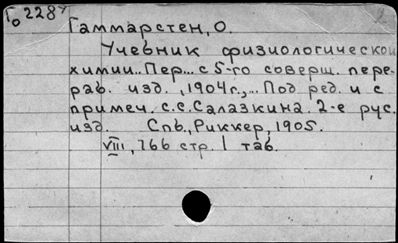 Го 228
Гаммарстен, О.
Учебник физиологической
химии.. Пер... с 5-го соверш. пере-
раб. изд., 1904г.,... Под ред. и с
примеч. с.с. Салазкина. 2-е рус.
изд. Спб., Риккер, 1905.
VIII, 766 стр. 1 таб.